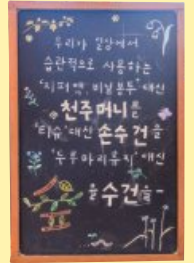 우리가 일상에서
습관적으로 사용하는
"지퍼백, 비닐봉투" 대신
천주머니를
"티슈" 대신 손수건을
"두루마리휴지" 대신
을 수건을-